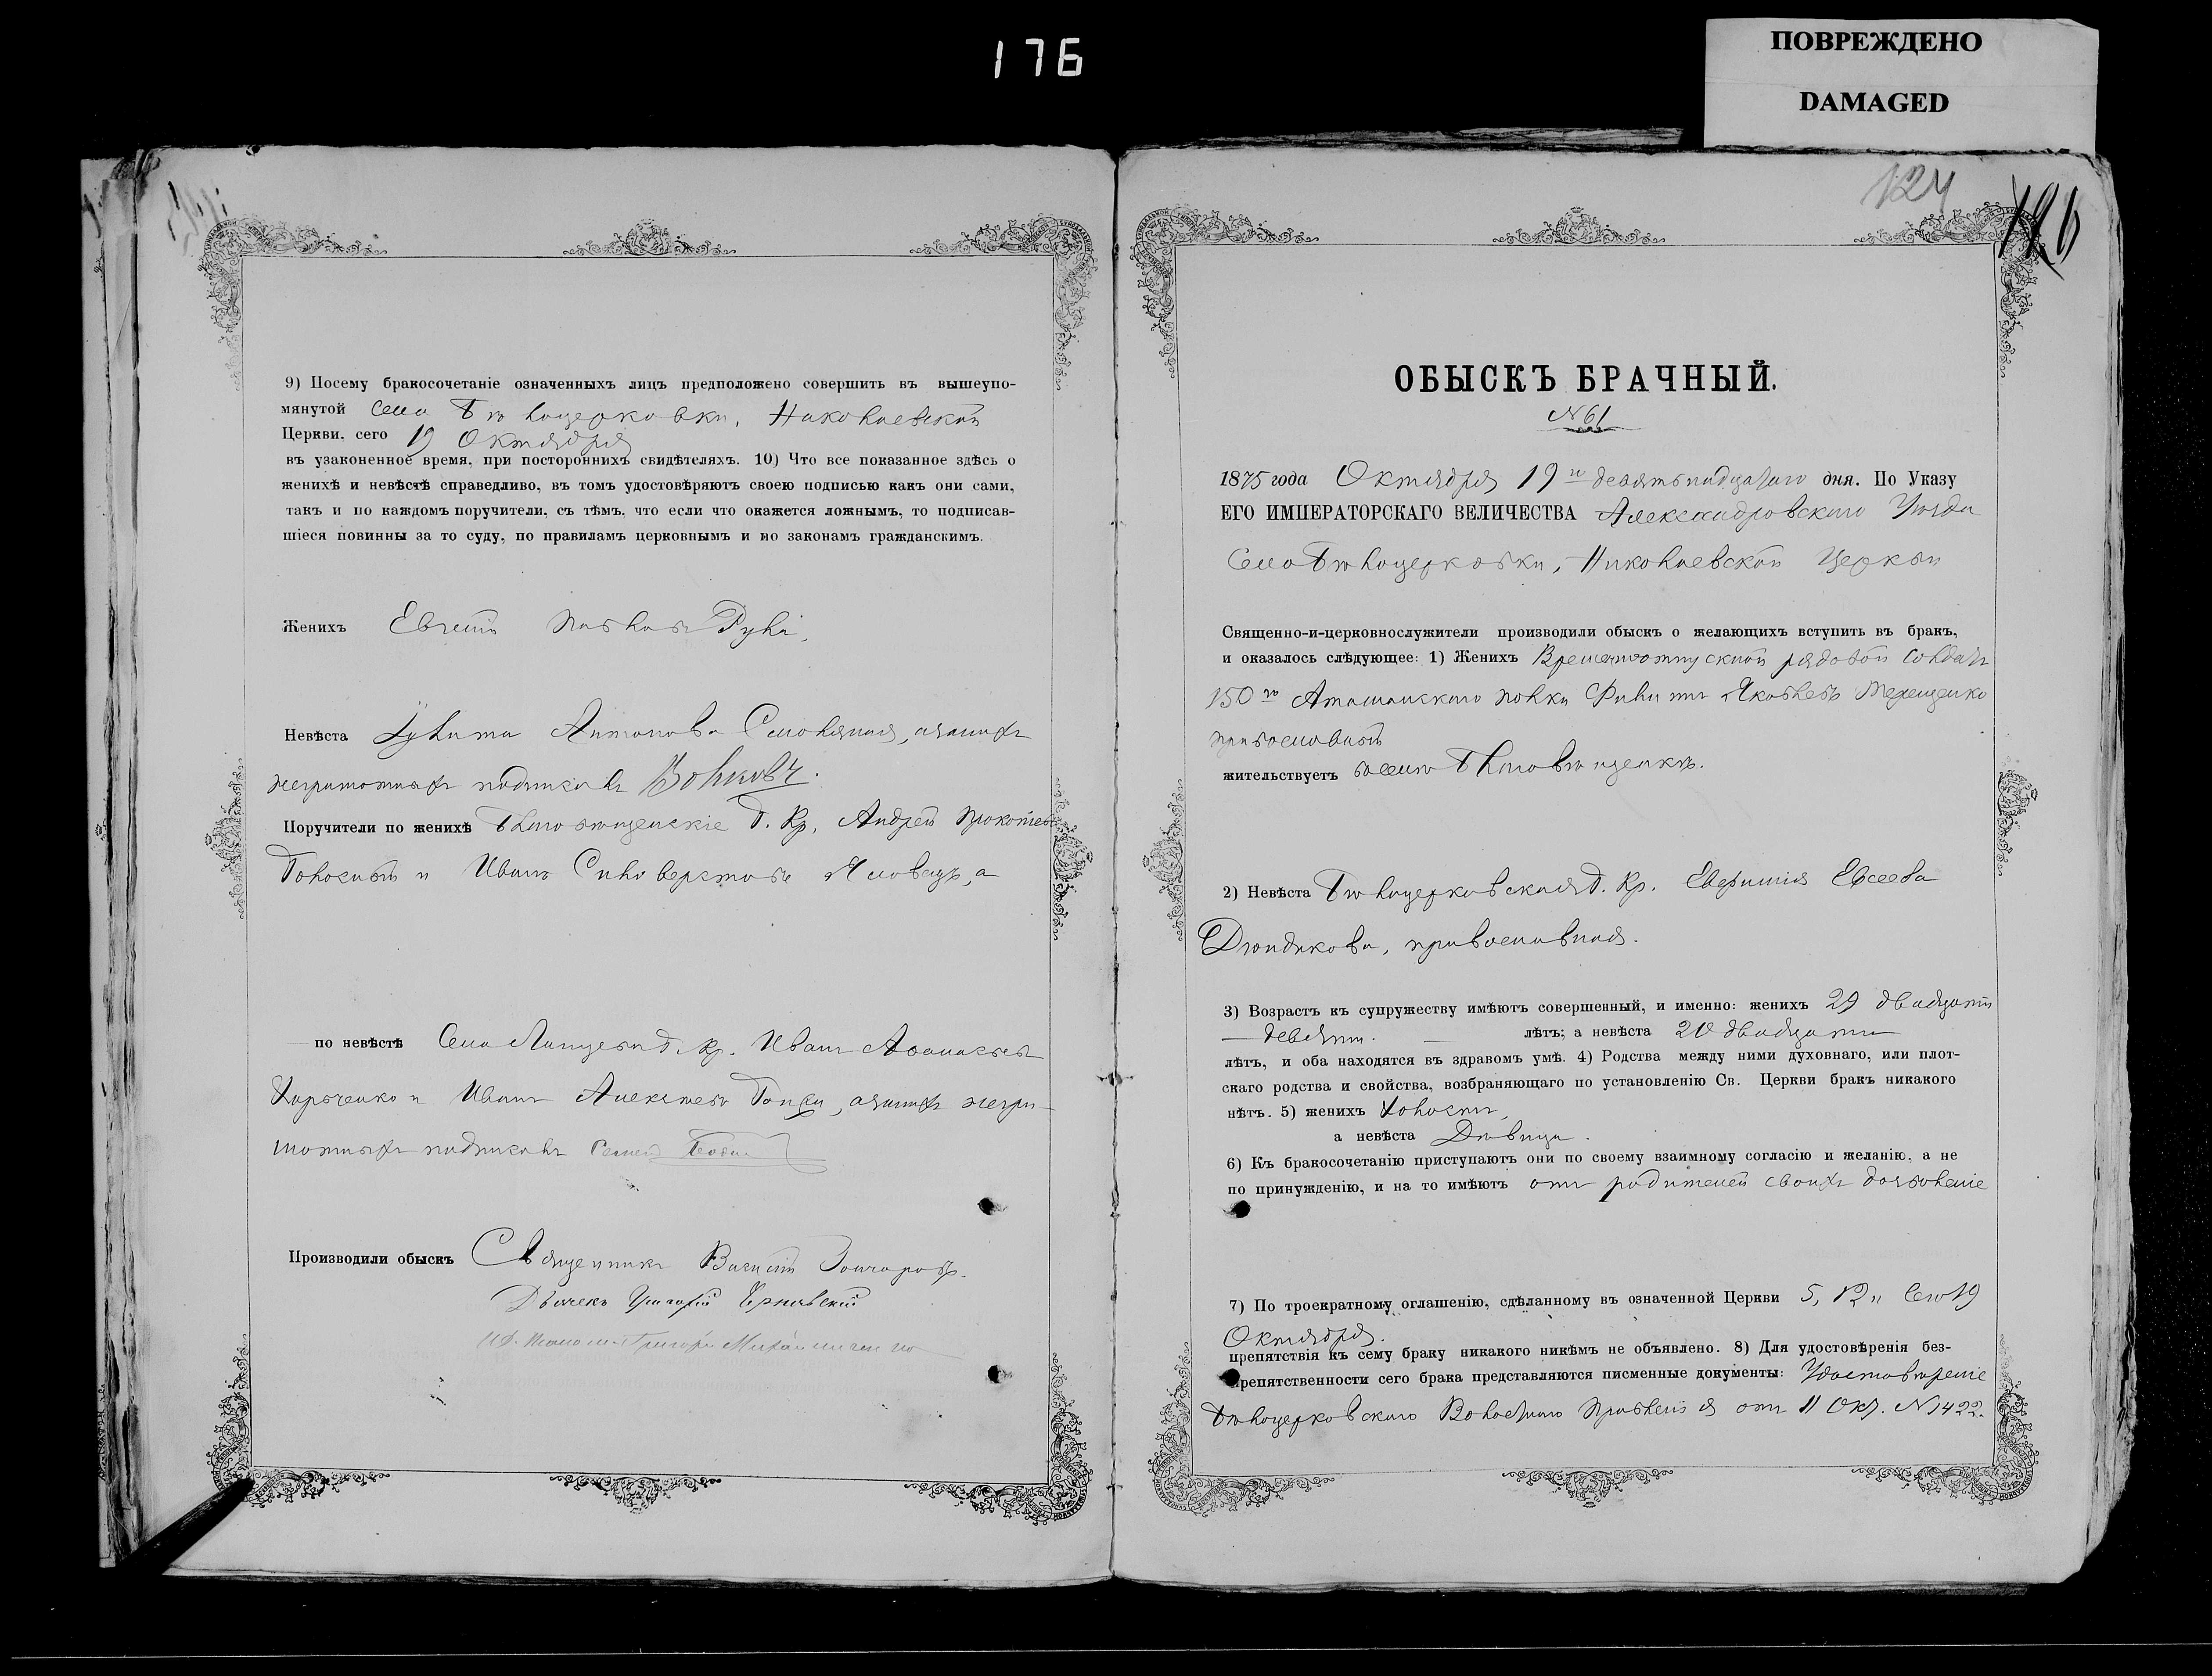 176
ПОВРЕЖДЕНО
DAMAGED
9) Посему бракосочетаніе означенныхъ лицъ предположено совершить въ вышеупо-
мянутой села Бѣлоцерковки, Николаевской
Церкви, сего 19 Октября
въ узаконенное время, при постороннихъ свидѣтеляхъ. 10) Что все показанное здѣсь о
женихѣ и невѣстѣ справедливо, въ томъ удостовѣряютъ своею подписью какъ они сами,
такъ и по каждомъ поручители, съ тѣмъ, что если что окажется ложнымъ, то подписав-
шіеся повинны за то суду, по правиламъ церковнымъ и по законамъ гражданскимъ.
Женихъ Евгеній
Невѣста Антонова а за нихъ
неграмотныхъ подписалъ Волковъ.
Поручители по женихѣ Г. Кр. Андрей Прокопіевъ
и Иванъ Силоверстовъ Яловецъ, а
по невѣстѣ Села Кр. Иванъ Аѳанасьевъ
Харченко и Иванъ Алексѣевъ а за нихъ негра-
мотныхъ подписалъ
Производили обыскъ Священникъ Василій Гончаровъ.
Дьячекъ Григорій Чернявскій
И.д. Григорій
124
126
ОБЫСКЪ БРАЧНЫЙ.
№ 61
1875 года Октября 19го девятьнадцатаго дня. По Указу
ЕГО ИМПЕРАТОРСКАГО ВЕЛИЧЕСТВА Александровскаго Уѣзда
Села Бѣлоцерковки, Николаевской Церкви
Священно-и-церковнослужители производили обыскъ о желающихъ вступить въ бракъ,
и оказалось слѣдующее: 1) Женихъ Временноотпускной рядовой солдатъ
150го Таманскаго полка Филиппъ Яковлевъ Терещенко
православный
жительствуетъ въ селѣ Благовѣщенкѣ.
2) Невѣста Бѣлоцерковская Г. Кр. Евфимія Евсеева
Дюндикова, православная.
3) Возрастъ къ супружеству имѣютъ совершенный, и именно: женихъ 29 двадцать
девять. лѣтъ; а невѣста 20 двадцать
лѣтъ, и оба находятся въ здравомъ умѣ. 4) Родства между ними духовнаго, или плот-
скаго родства и свойства, возбраняющаго по установленію Св. Церкви бракъ никакого
нѣтъ. 5) женихъ Холостъ,
а невѣста Дѣвица.
6) Къ бракосочетанію приступаютъ они по своему взаимному согласію и желанію, а не
по принужденію, и на то имѣютъ отъ родителей своихъ дозволеніе
7) По троекратному оглашенію, сдѣланному въ означенной Церкви 5, 12 и сего 19
Октября.
препятствія къ сему браку никакого никѣмъ не объявлено. 8) Для удостовѣренія без-
препятственности сего брака представляются писменные документы: Удостовѣреніе
Бѣлоцерковскаго Волостнаго Правленія отъ 11 Окт. №1422.